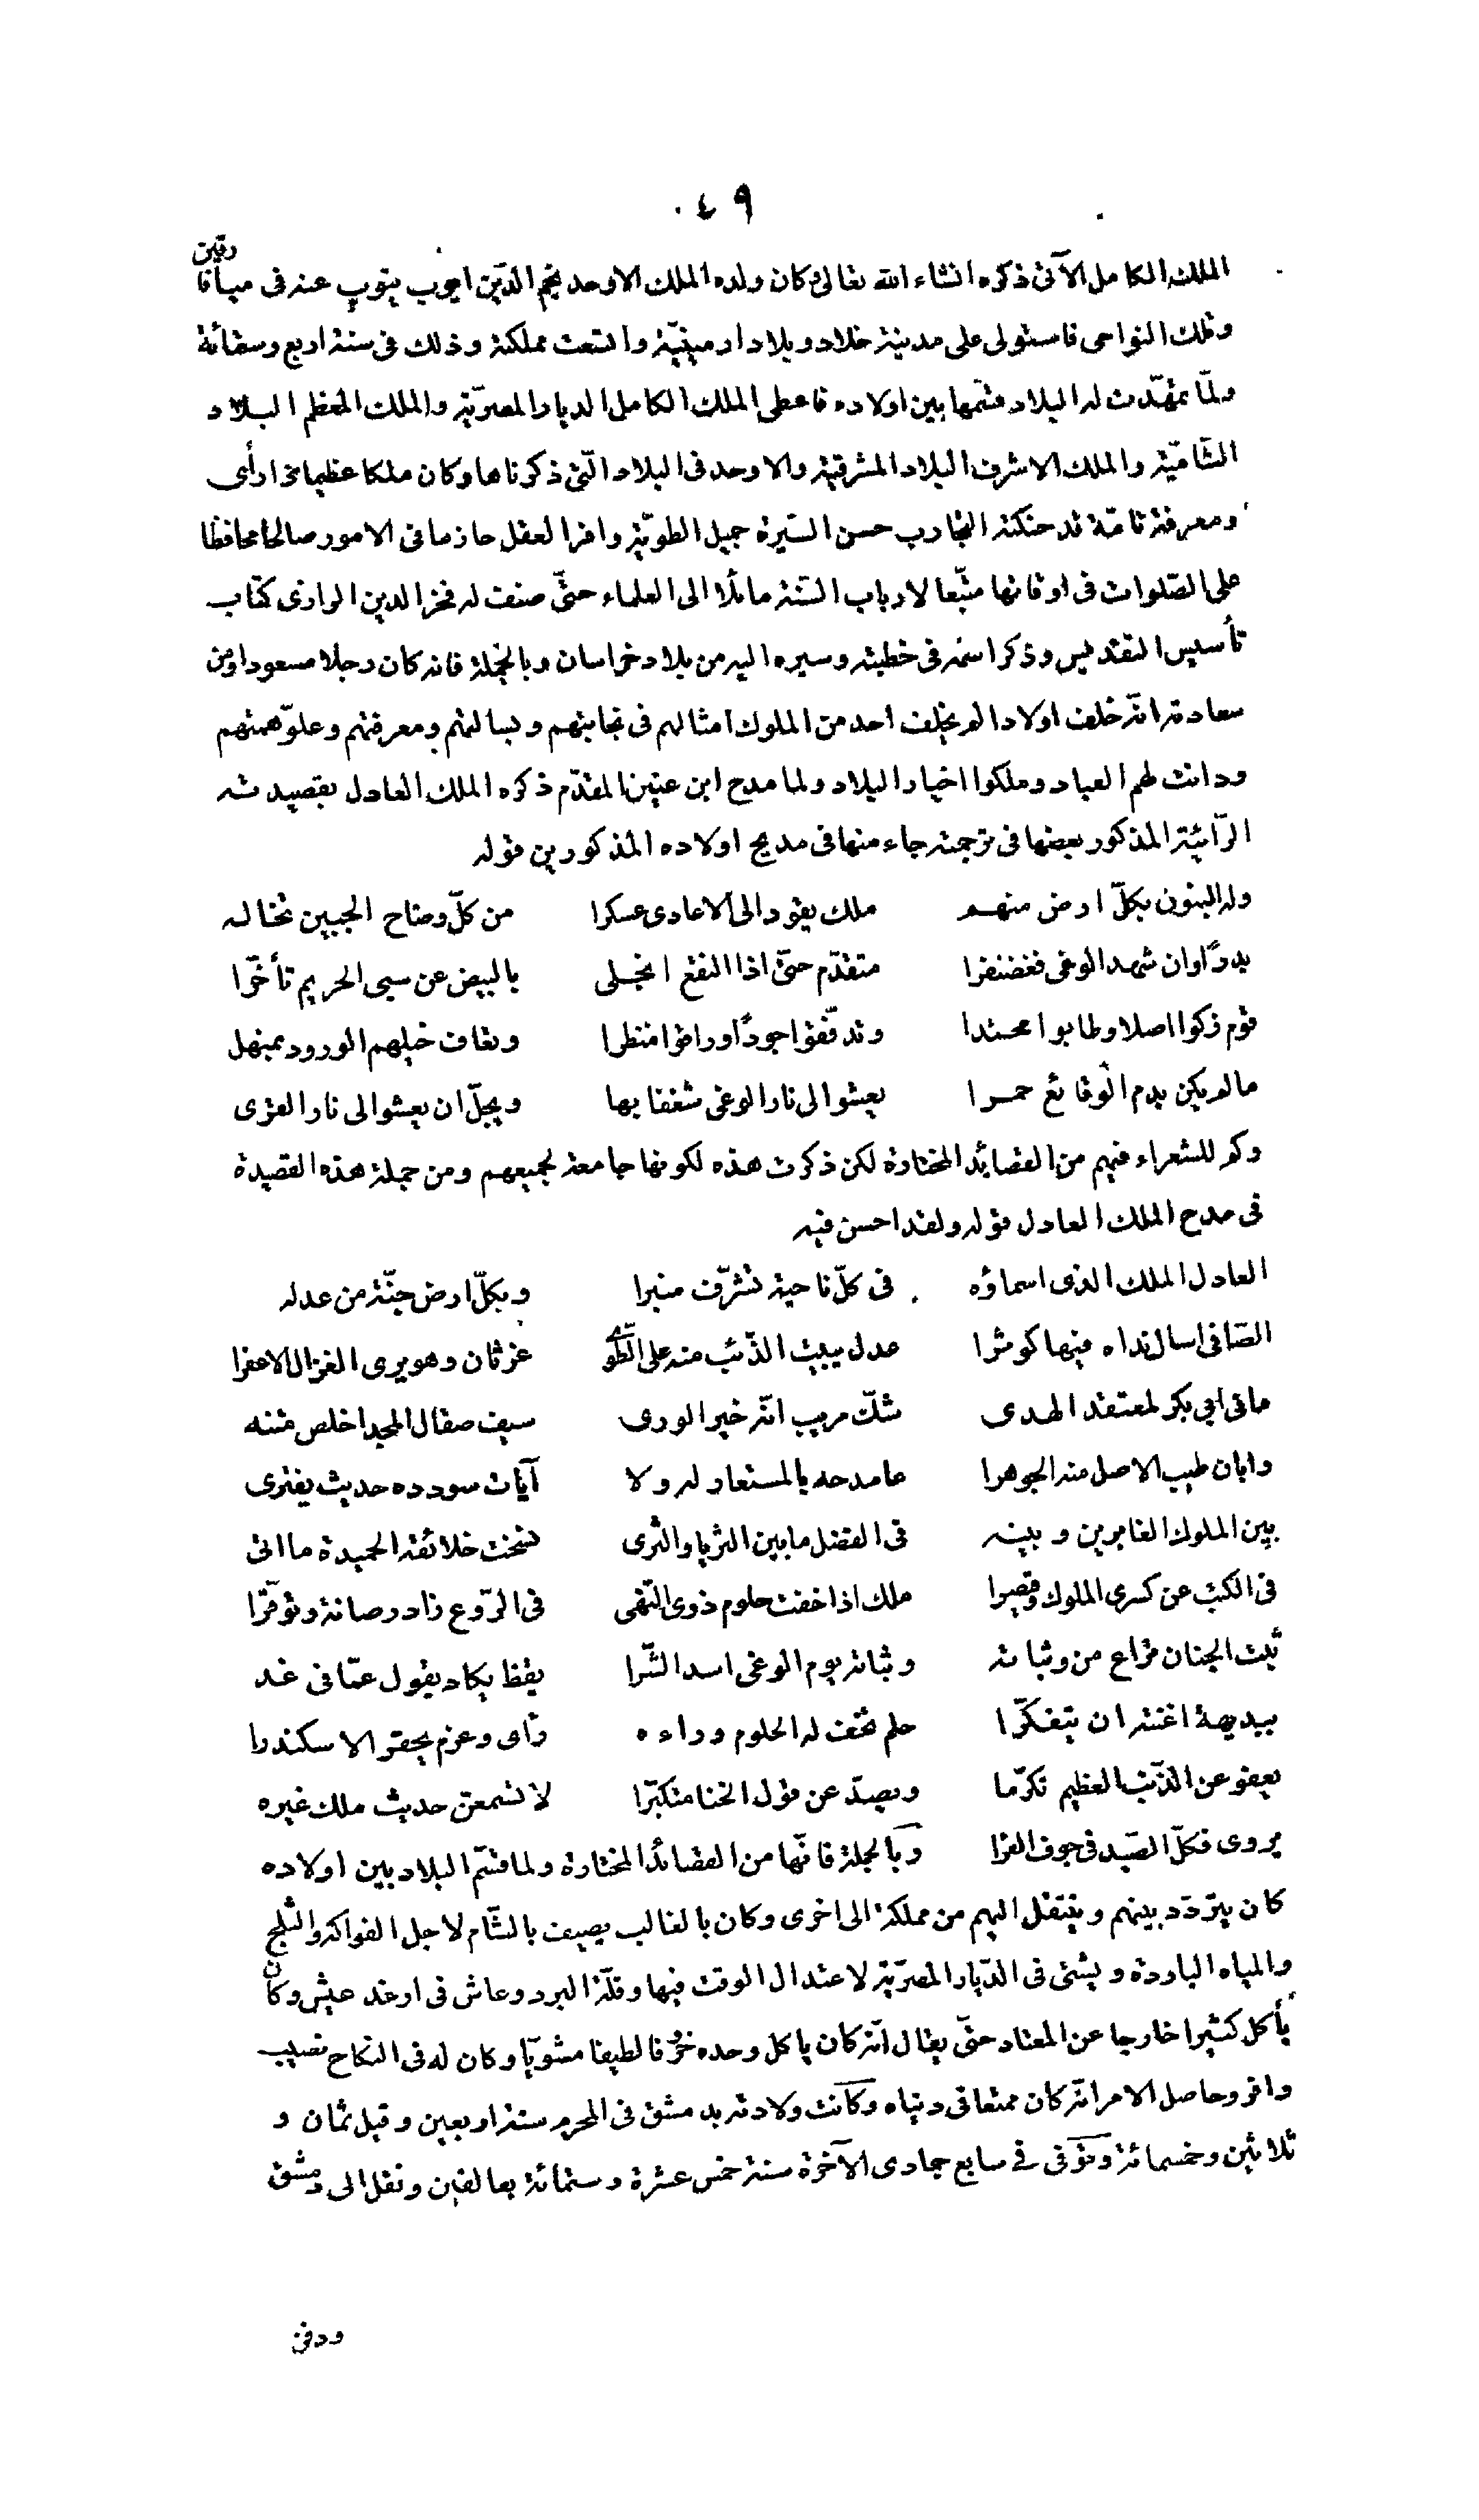 ٠٤٩
الملك الكامل الآتى ذكره انشاء الله تعالى وكان ولده الملك الاوحد نجم الدّين ايوب ينوب عنه فى ميافارقين
وتلك النواحى فاستولى على مدينة خلاد وبلاد ارمينيّة واتسعت مملكته وذلك فى سنة اربع وستمائة
ولمّا تمهّدت له البلاد قسّمها بين اولاده فاعطى الملك الكامل الديار المصريّة والملك المعظم البلاد
الشّاميّة والملك الاشرف البلاد المشرقية والاوحد فى البلاد الّتى ذكرناها وكان ملكا عظيما ذا رأى
ومعرفة تامّة قد حنكته التجارب حسن السّيرة جميل الطويّة وافر العقل حازما فى الامور صالحا محافظا
على الصّلوات فى اوقاتها متّبعا لارباب السّنة مائلا الى العلماء حتّى صنف له فخر الدين الرازى كتاب
تأسيس التقديس وذكر اسمه فى خطبته وسيره اليه من بلاد خراسان وبالجملة فانه كان رجلا مسعودا ومن
سعادته انّه خلف اولادا لم يخلف احد من الملوك امثالهم فى نجابتهم وبسالتهم ومعرفتهم وعلوّ همتهم
ودانت لهم العباد وملكوا اخيار البلاد ولما مدح ابن عنين المقدّم ذكره الملك العادل بقصيدته
الرّائيّة المذكور بعضها فى ترجمته جاء منها فى مديح اولاده المذكورين قوله
وله البنون بكلّ ارض منهم ملك يقود الى الاعادى عسكرا من كلّ وضاح الجبين تخاله
بدرًا وان شهد الوغى فغضنفرا متقدّم حتّى اذا النقع انجلى بالبيض عن سبى الحريم تأخّرا
قوم زكوا اصلا وطابوا محتدا وتدفّقوا جودًا وراقوا منظرا وتعاف خيلهم الورود بمنهل
مالم يكن بدم الوقائع حمرا يعشو الى نار الوغى شغفا بها ويجلّ ان يعشو الى نار القرى
وكم للشعراء فيهم من القصايد المختارة لكن ذكرت هذه لكونها جامعة لجميعهم ومن جملة هذه القصيدة
فى مدح الملك العادل قوله ولقد احسن فيه
العادل الملك الذى اسماؤه فى كلّ ناحية تشرّف منبرا وبكلّ ارض جنّة من عدله
الصّافى اسال نداه فيها كوثرا عدل يبيت الذّئب منه على الطّوى غرثان وهو يرى الغزال الاعفرا
مافى ابى بكر لمعتقد الهدى شكّ مريب انّه خير الورى سيف صقال المجد اخلص متنه
وابان طيب الاصل منه الجوهرا مامدحه بالمستعار له ولا آيات سودده حديث يفترى
بين الملوك الغابرين وبينه فى الفضل مابين الثريا والثرى نسخت خلائقه الحميدة مااتى
فى الكتب عن كسرى الملوك وقيصرا ملك اذا خفت حلوم ذوى النّهى فى الرّوع زاد رصانة وتوقّرا
ثبت الجنان تراع من وثباته وثباته يوم الوغى اسد الشّرا يقظ يكاد يقول عمّا فى غد
ببديهة اغنته ان يتفكّرا حلم تخف له الحلوم وراءه رأى وعزم يحقر الاسكندرا
يعفو عن الذّنب العظيم تكرّما ويصدّ عن قول الخنا متكبّرا لا تسمعن حديث ملك غيره
يروى فكلّ الصّيد فى جوف الفرا وبالجملة فانّها من القصائد المختارة ولما قسّم البلاد بين اولاده
كان يتردّد بينهم وينتقل اليهم من مملكة الى اخرى وكان بالغالب يصيف بالشّام لاجل الفواكه والثلج
والمياه الباردة ويشتى فى الدّيار المصريّة لاعتدال الوقت فيها وقلّة البرد وعاش فى ارغد عيش وكان
يأكل كثيرا خارجا عن المعتاد حتّى يقال انّه كان ياكل وحده خروفا لطيفا مشويّا وكان له فى النكاح نصيب
وافر وحاصل الامر انّه كان ممتعا فى دنياه وكانت ولادته بدمشق فى المحرم سنة اربعين وقيل ثمان و
ثلاثين وخمسمائة وتوفى فى سابع جمادى الآخرة سنة خمس عشرة وستمائة بعالقين ونقل الى دمشق
ودفن